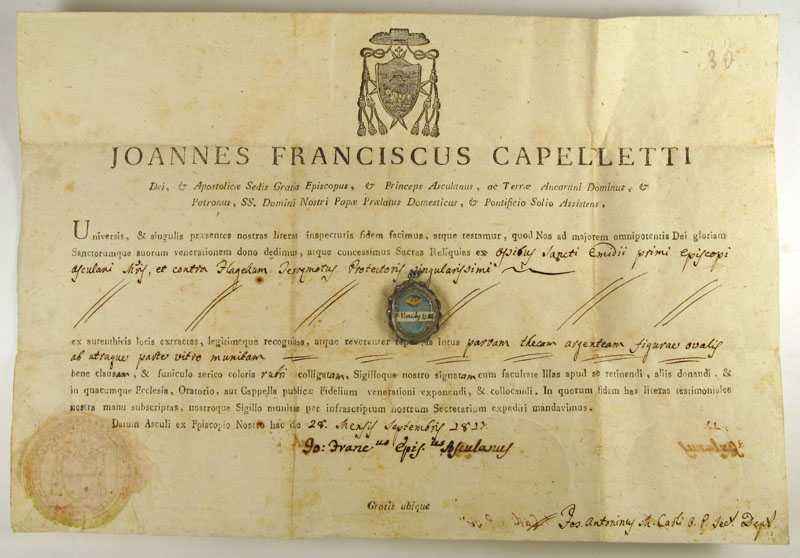 30
JOANNES FRANCISCUS CAPELLETTI
Dei, & Apostolicæ Sedis Gratia Episcopus, & Princeps Asculanus, ac Terræ Ancarani Dominus, &
Patronus, SS. Domini Nostri Papæ Prælatus Domesticus, & Pontificio Solio Assistens.
Universis, & singulis præsentes nostras literas inspecturis fidem facimus, atque testamur, quod Nos ad majorem omnipotentis Dei gloriam
Sanctorumque suorum venerationem dono dedimus, atque concessimus Sacras Reliquias ex Ossibus Sancti Emidii primi Episcopi
Asculani Mris, et contra Flagellum Terræmotus Protectoris singularissimi
S Emidy E M
ex authenthicis locis extractas, legitimeque recognitas, atque reverenter repositas intus parvam thecam argenteam figurae ovalis
ab utraque parte vitro munitam
bene clausam, & funiculo serico coloris rubri colligatam, Sigilloque nostro signatam cum facultate Illas apud se retinendi, aliis donandi, &
in quacumque Ecclesia, Oratorio, aut Cappella publicæ Fidelium venerationi exponendi, & collocandi. In quorum fidem has literas testimoniales
nostra manu subscriptas, nostroque Sigillo munitas per infrascriptum nostrum Secretarium expediri mandavimus.
Datum Asculi ex Episcopio Nostro hac die 28. Mensis Septembris
Jo: Francus Epis.us Asculanus
Gratis ubique
Jos. Antoninus Secr. Dept.